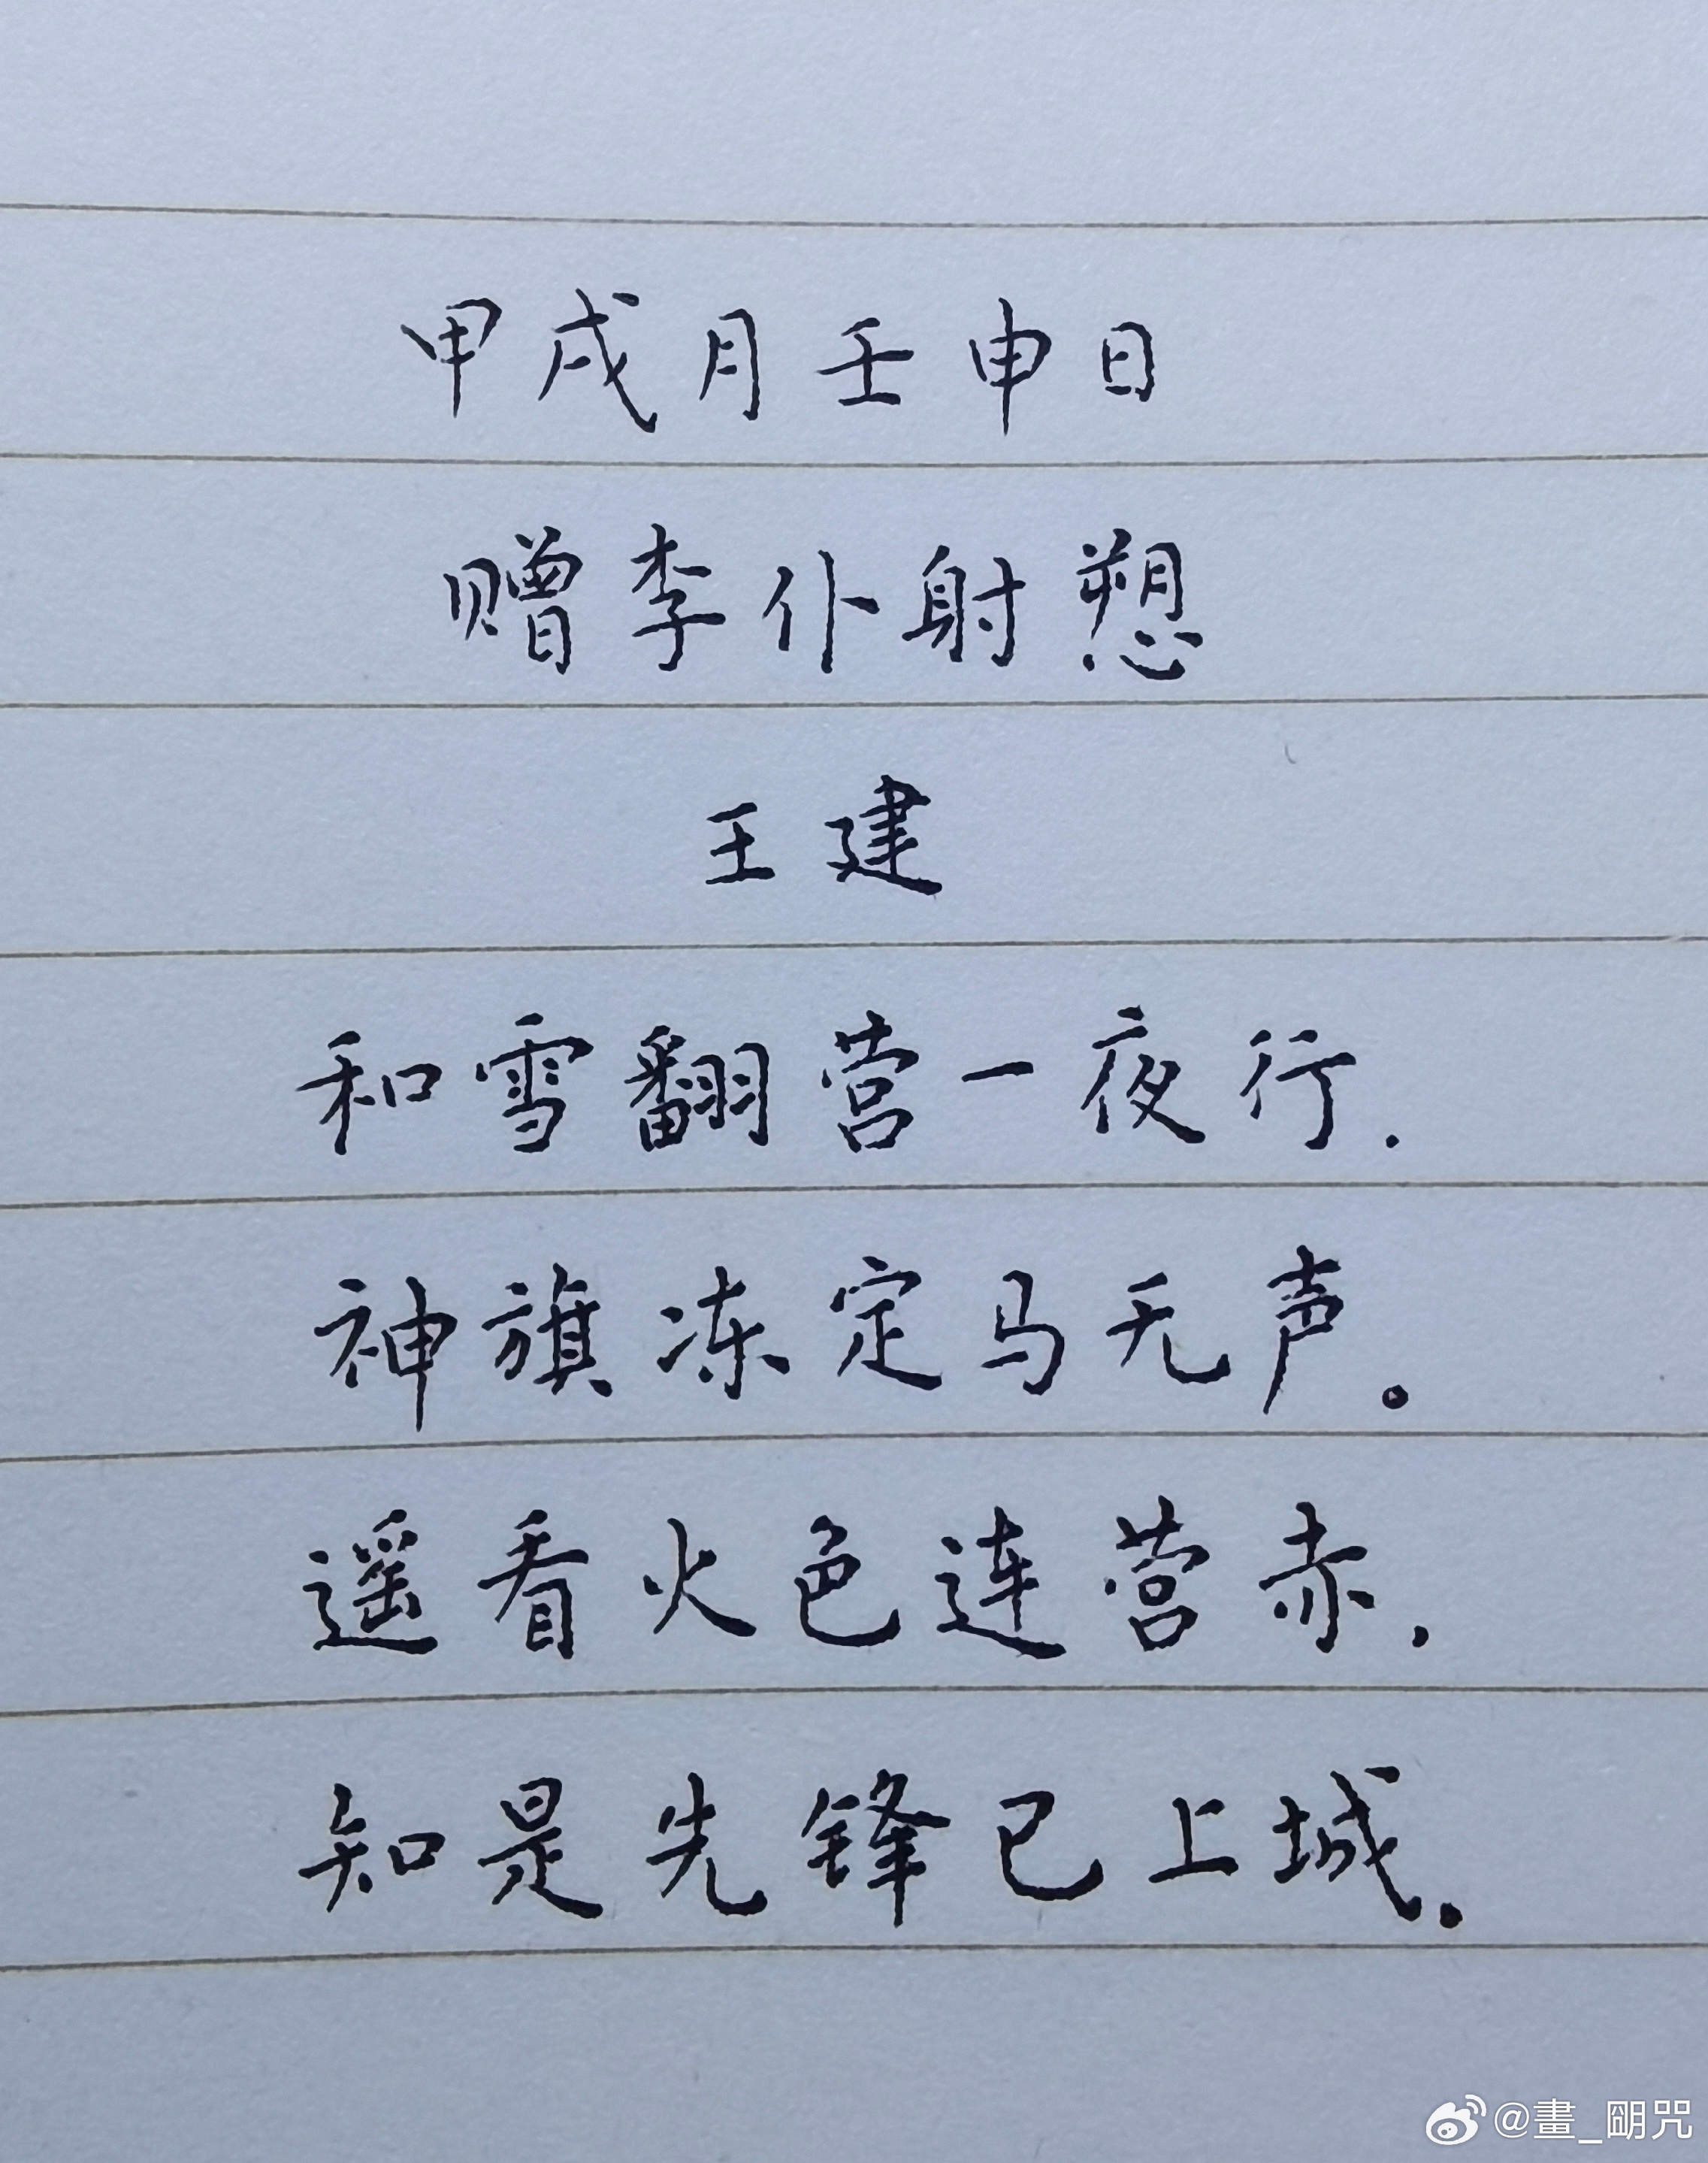 甲戌月壬申日
赠李仆射愬
王建
和雪翻营一夜行.
神旗冻定马无声。
遥看火色连营赤,
知是先锋已上城.
@畫_朙咒